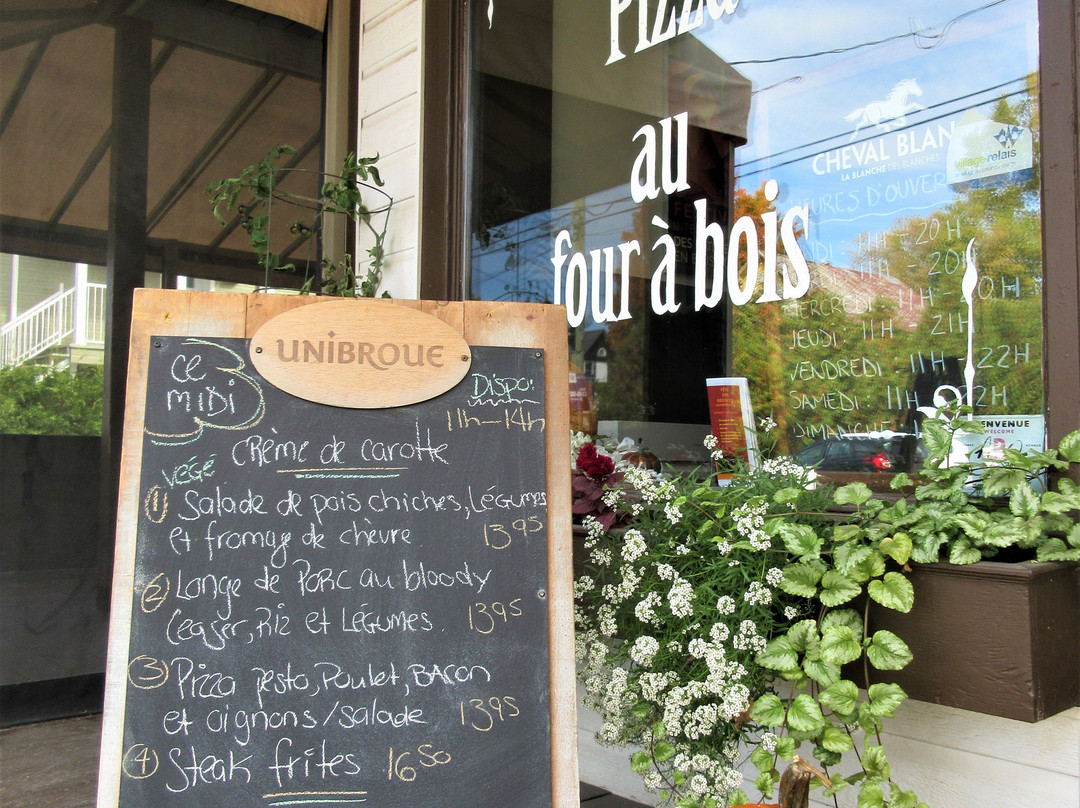 UNIBROUE
ce
midi
Dispo:
11h-14h
crème de carotte
végé
① Salade de pois chiches, Légumes
et fromage de chèvre 13 95
② Longe de Porc au bloody
Ceaser, Riz et Légumes. 13 95
③ Pizza pesto, Poulet, Bacon
et oignons/salade 13 95
④ Steak frites 16 50
Pizza
au
four à bois
CHEVAL BLAN
LA BLANCHE DES BLANCHES
village-relais
HEURES D'OUVER
DI: 11H - 20H
11H - 20
MERCREDI: 11H - 20H
JEUDI: 11H - 21H
VENDREDI: 11H - 22H
SAMEDI: 11H 22H
DIMANCHE
ENVENUE
WELCOME